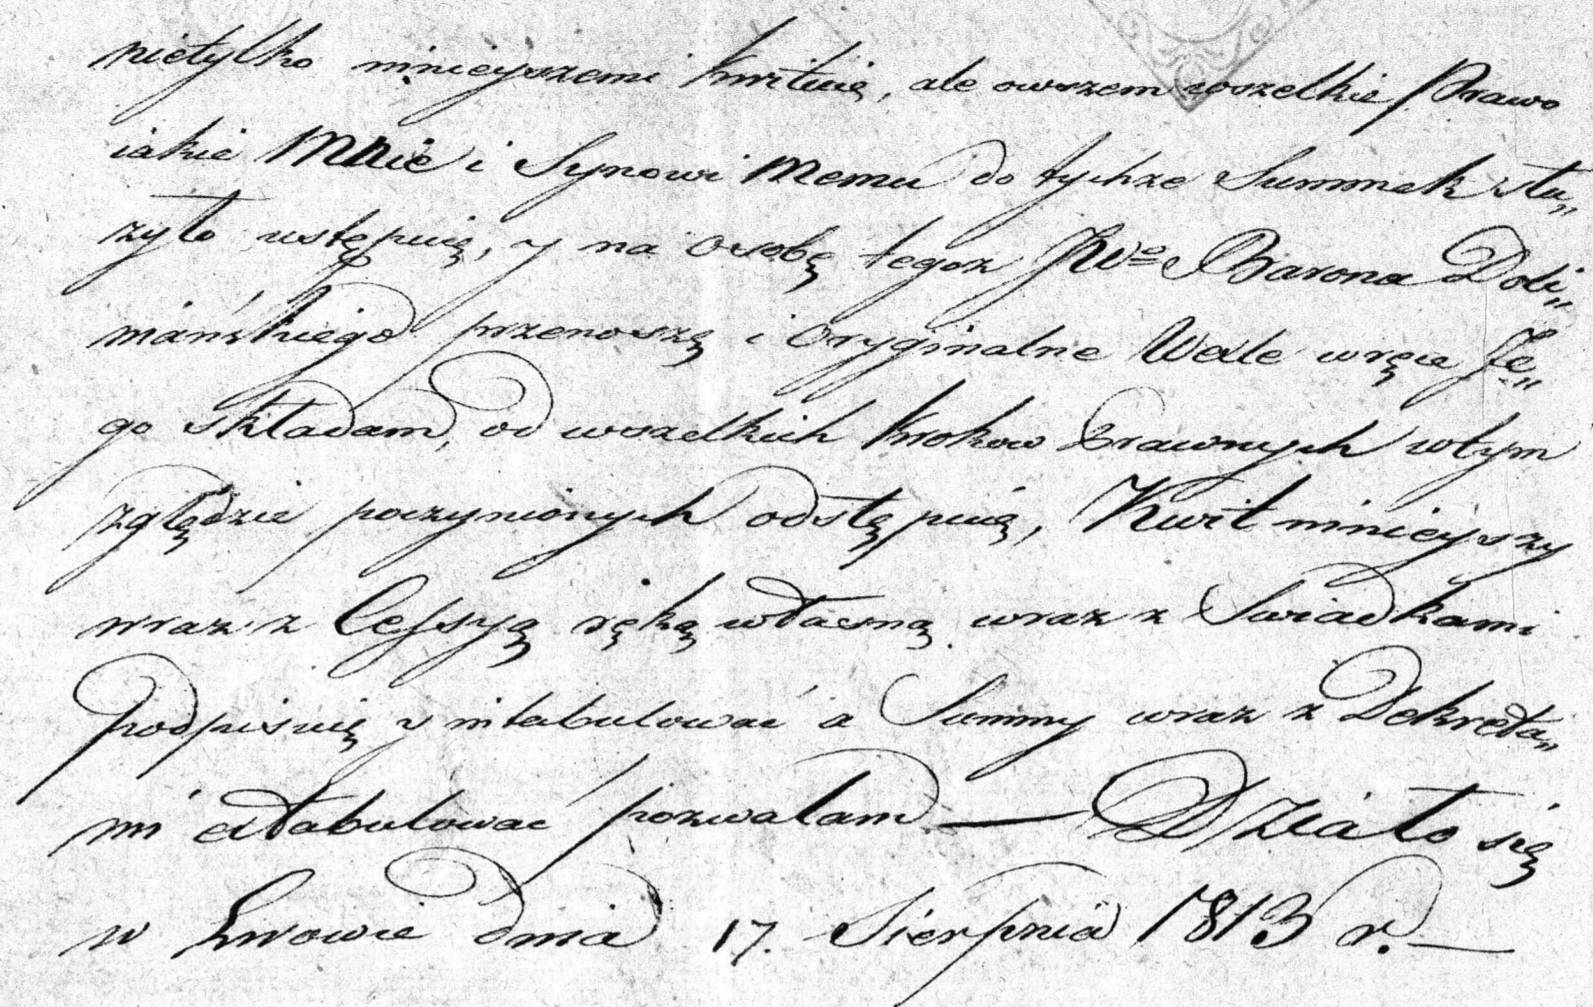 nietylko ninieyszemi kwituię, ale owszem wszelkie Prawo
iakie Mnie i Synowi Memu do tychże Summ słu„
żyło ustępuię, y na Osobę tegoż JWo Barona Doli„
niańskiego przenoszę i Oryginalne Wexle w ręce Je„
go składam, od wszelkich krokow Prawnych w tym
względzie poczynionych odstępuię, Kwit ninieyszy
wraz z Cessyą ręką własną wraz z Swiadkami
podpisuię y intabulować a Summy wraz z Dekreta„
mi extabulować pozwalam — Działo się
w Lwowie dnia 17. Sierpnia 1813 r. —